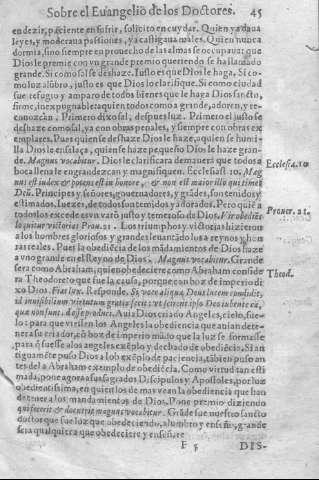 Sobre el Euangelio de los Doctores. 45
en dezir, paciente en sufrir, solicito en cuydar. Quien yadaua
leyes, y moderaua passiones, ya castigaua males. Quien nunca
dormia, sino siempre en prouecho de las almas se ocupaua: que
Dios le premie con vn grande premio queriendo se ha llamado
grande. Si como sal se deshaze. Iusto es que Dios le haga, Si co-
mo luz alũbro, justo es que Dios lo clarifique. Si como ciudad
fue refugio y amparo de todos bienes que le haga Dios sancto,
firme, inexpugnable: a quien todos como a grande, adoren, y re-
conozcan. Primero dixo sal, despues luz. Primero el justo se
deshaze como sal, ya con obras penales, y siempre con obras ex-
emplares. Pues quien se deshaze Dios le haze, quien se humi-
lla Dios le ensalça, quien se haze pequeño Dios le haze gran-
de. Magnus vocabitur. Dios le clarificara de manera que todos a
boca llena le engrandezcan y magnifiquen. Ecclesiast. 10. Mag
nus est iudex & potens est in honore, & non est maior illo qui timet
Deũ. Principes y señores, gouernadores, y grãdes, son tenidos y
estimados. Iuezes, de todos son temidos y adorados. Pero quiẽ a
todos los excede es vn varõ justo y temeroso de Dios. Vir obediẽs
loquitur victorias Prou. 21. Los triumphos y victorias hizieron
a los hombres gloriosos y grandes leuantãdolos a reynos y hon
ras reales. Pues la obediẽcia de los mãdamientos de Dios haze
a vno grande en el Reyno de Dios. Magnus vocabitur. Grande
sera como Abraham, quien obedeciere como Abraham conside
ra Theodoreto que fue la causa, porque con boz de imperio di
xo Dios. Fiat lux. Responde.
Auia Dios criado Angeles, cielo, sue-
lo: para que viessen los Angeles la obediencia que auian dete-
ner a su criador, cõ boz de imperio mãto que la luz se formasse
para q̃ fuesse a los angeles exẽplo y dechado de obediẽcia. Si an
tiguamẽte puso Dios a Iob exẽplo de paciencia, tãbien puso an
tes del a Abraham exemplo de obediẽcia. Como virtud tan esti
mada, pone agora a sus sagrados Discipulos y Apostoles, por luz
obedientissima, en quien los de mas vean la obediencia que han
de tener a los mandamientos de Dios. Pone premio diziendo
qui fecerit & docuerit magnus vocabitur. Grãde fue nuestro sancto
doctor que fue luz que obedeciendo, alumbro y enseño, grande
sera qualquiera que obedeciere y enseñare
Ecclesia. 10
Prouer. 21.
Theod.
F 5 DIS-